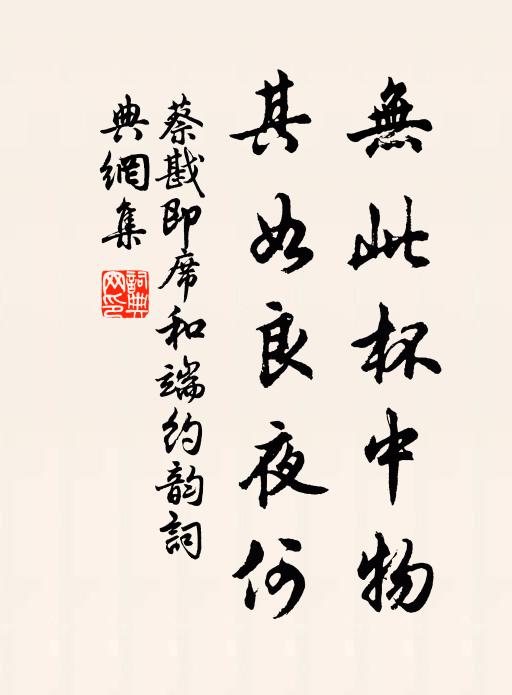 無此杯中物
其如良夜何
蔡戡即席和端約韵詞
典網集
詞典網印